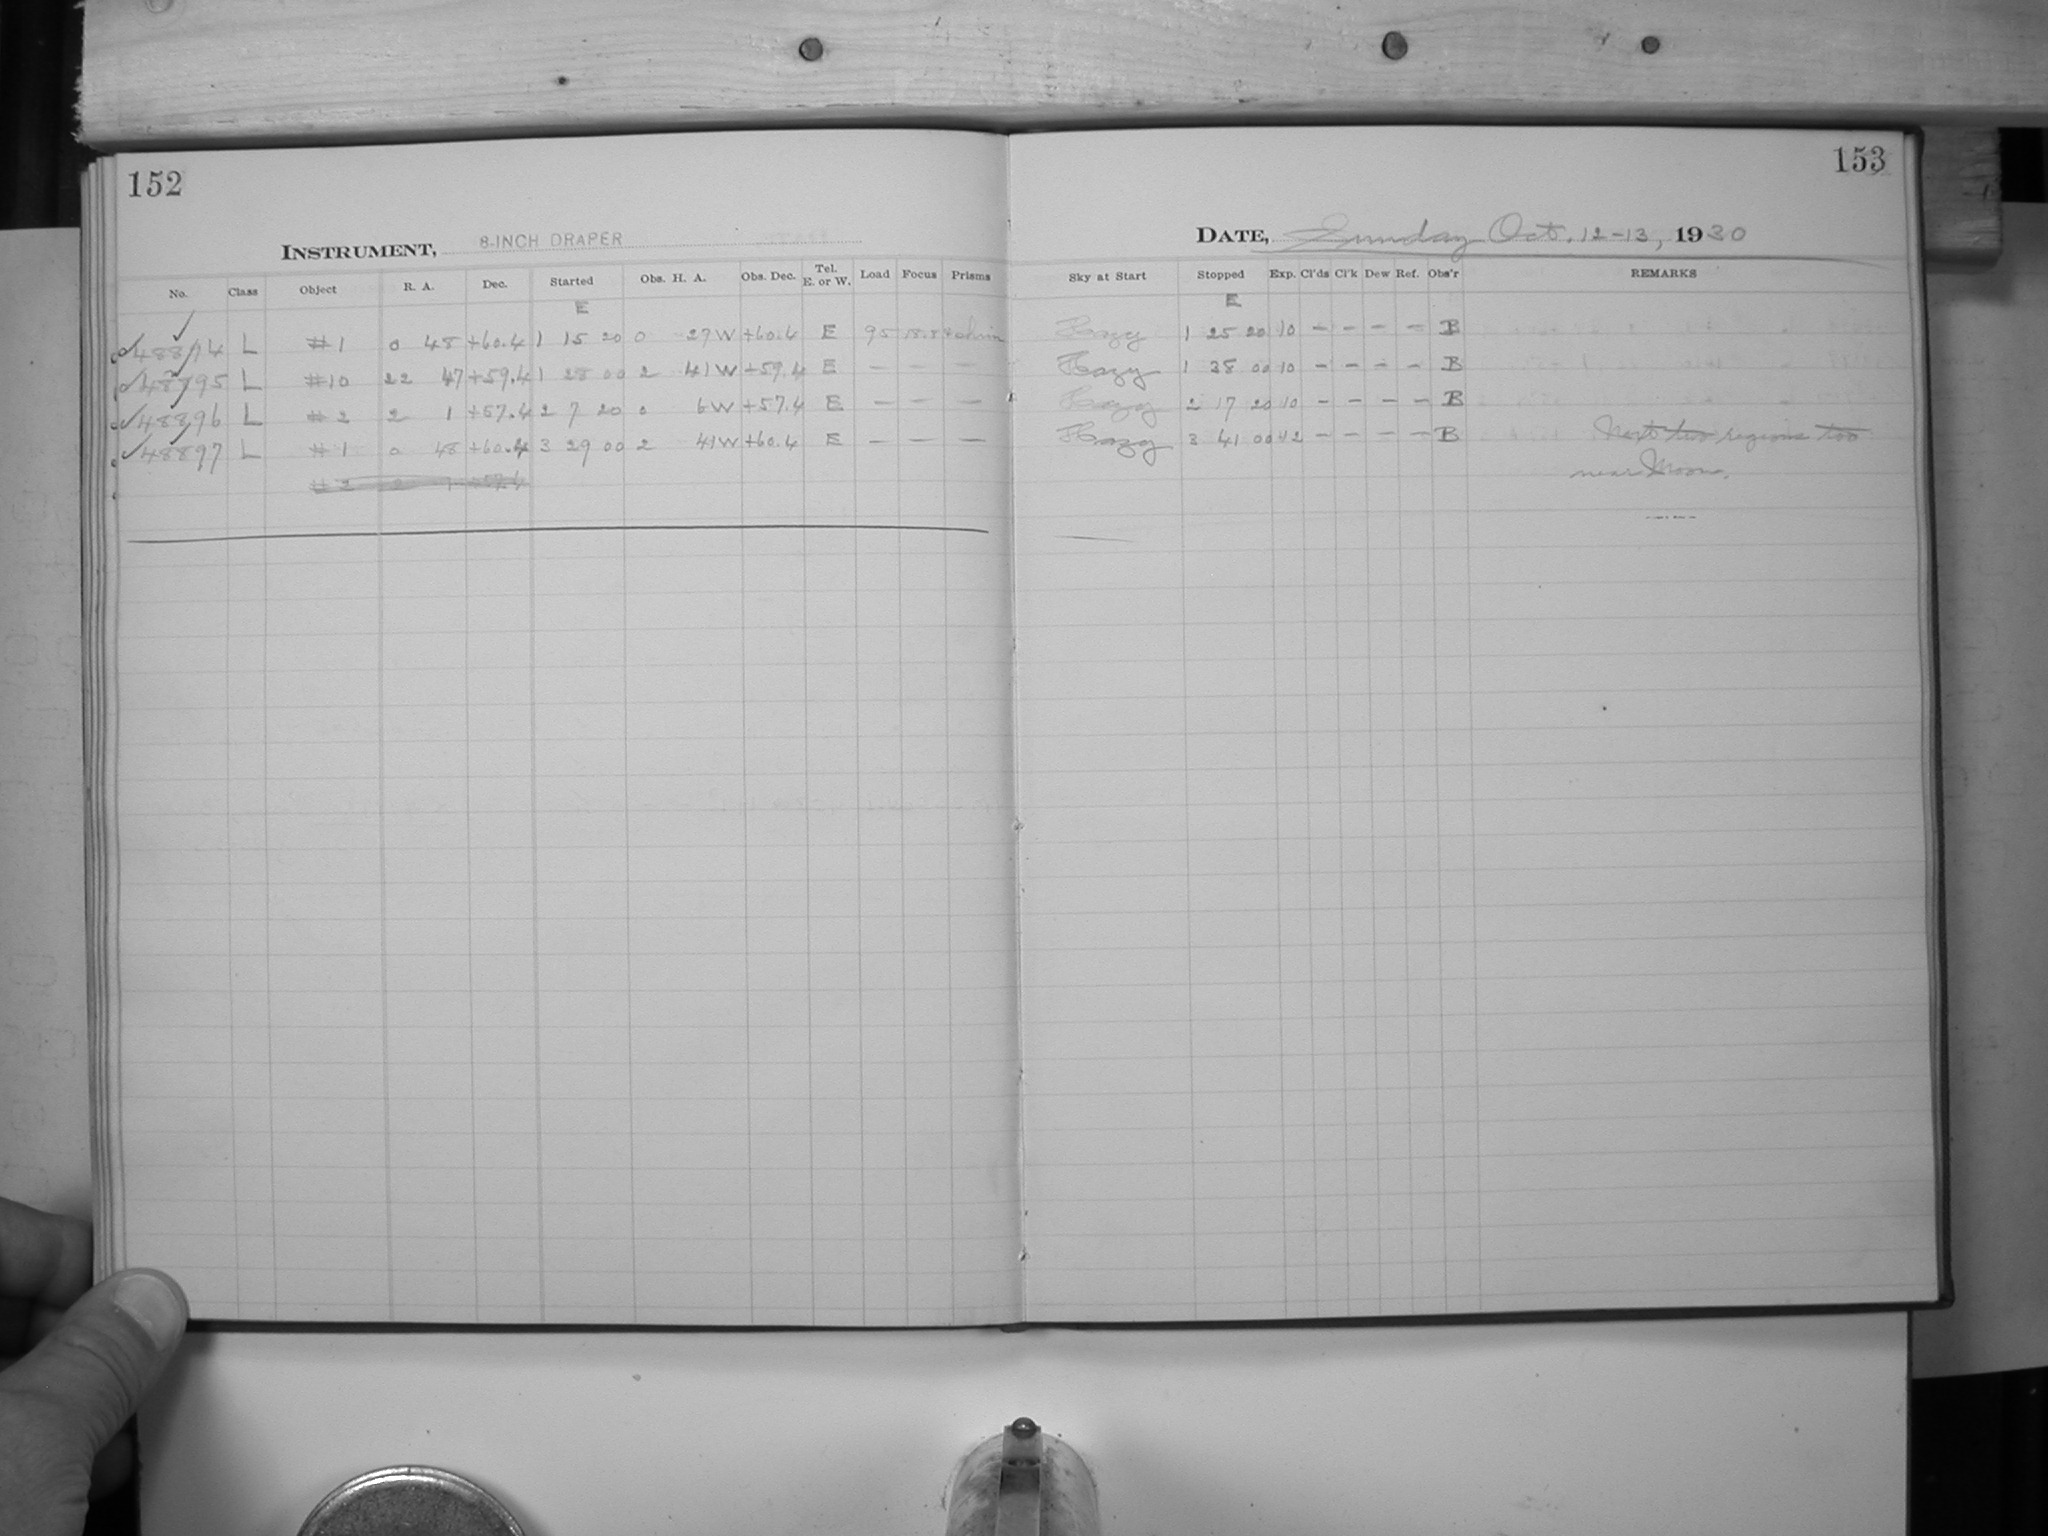 152
INSTRUMENT, 8-INCH DRAPER
No. Class Object R. A. Dec. Started Obs. H. A. Obs. Dec. Tel. E. or W. Load Focus Prisms
E
48894 L #1 0 48 +60.4 1 15 20 0 27W +60.4 E 95
48895 L #10 22 47 +59.4 1 28 00 2 41W +59.4 E — — —
48896 L #2 2 1 +57.4 2 7 20 0 6W +57.4 E — — —
48897 L #1 0 48 +60.4 3 29 00 2 41W +60.4 E — — —
#2 2 1 +57.4
153
DATE, Sunday Oct. 12-13, 1930
Sky at Start Stopped Exp. Cl'ds Cl'k Dew Ref. Obs'r REMARKS
E
Hazy 1 25 20 10 — — — — B
Hazy 1 38 00 10 — — — — B
Hazy 2 17 20 10 — — — — B
Hazy 3 41 00 12 — — — — B Next two regions too
near Moon.